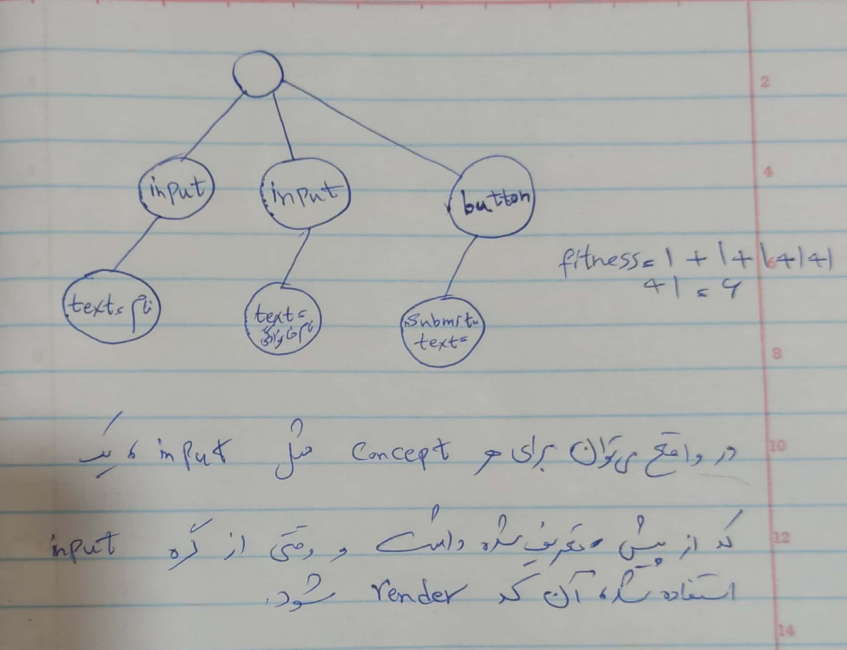 input
input
button
text = نام
text =
نام خانوادگی
submit
text =
fitness = 1 + 1 + 1 + 1 + 1
+ 1 = 6
در واقع می‌توان برای هر concept مثل input، یک
کد از پیش تعریف شده داشت و وقتی از گره input
استفاده شد، آن کد render شود.
2
4
6
8
10
12
14